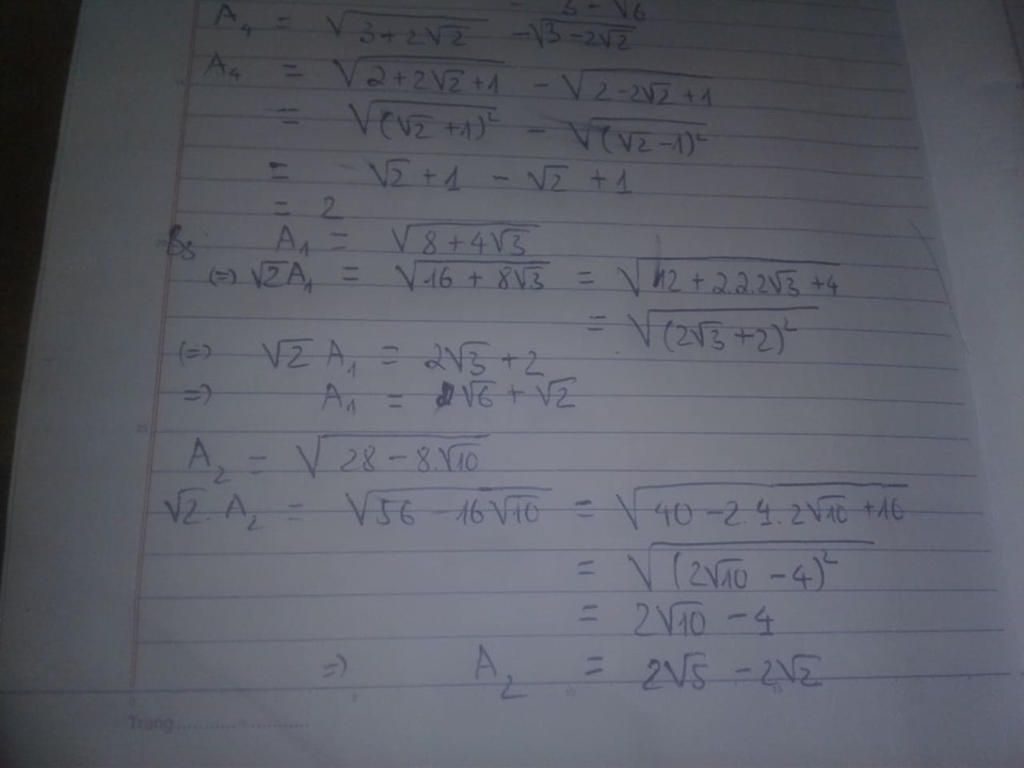 3 - √6
A₄ = √(3 + 2√2) - √(3 - 2√2)
A₄ = √(2 + 2√2 + 1) - √(2 - 2√2 + 1)
= √((√2 + 1)²) - √((√2 - 1)²)
= √2 + 1 - √2 + 1
= 2
A₁ = √(8 + 4√3)
(=) √2A₁ = √(16 + 8√3) = √(12 + 2.2.2√3 + 4)
= √((2√3 + 2)²)
(=) √2 A₁ = 2√3 + 2
=) A₁ = √6 + √2
A₂ = √(28 - 8.√10)
√2. A₂ = √(56 - 16√10) = √(40 - 2.4.2√10 + 16)
= √((2√10 - 4)²)
= 2√10 - 4
=) A₂ = 2√5 - 2√2
Trang